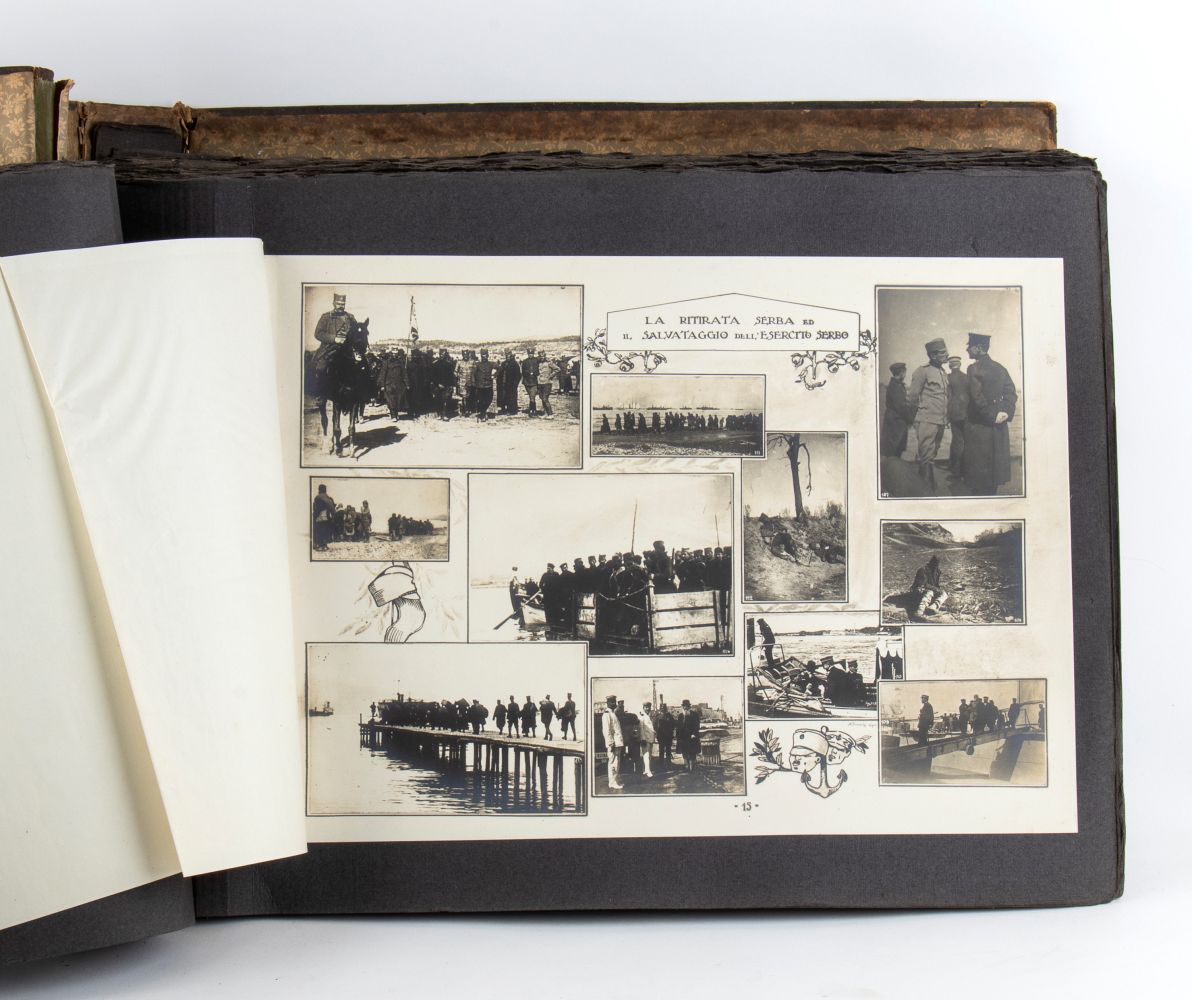 LA RITIRATA SERBA ED
IL SALVATAGGIO DELL'ESERCITO SERBO
111
107
112
- 15 -